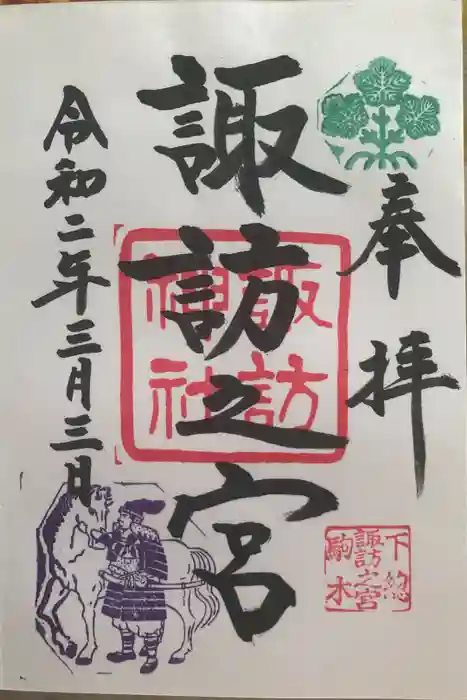 奉拝
諏訪之宮
諏訪
神社
令和二年三月三日
下総
諏訪之宮
駒木